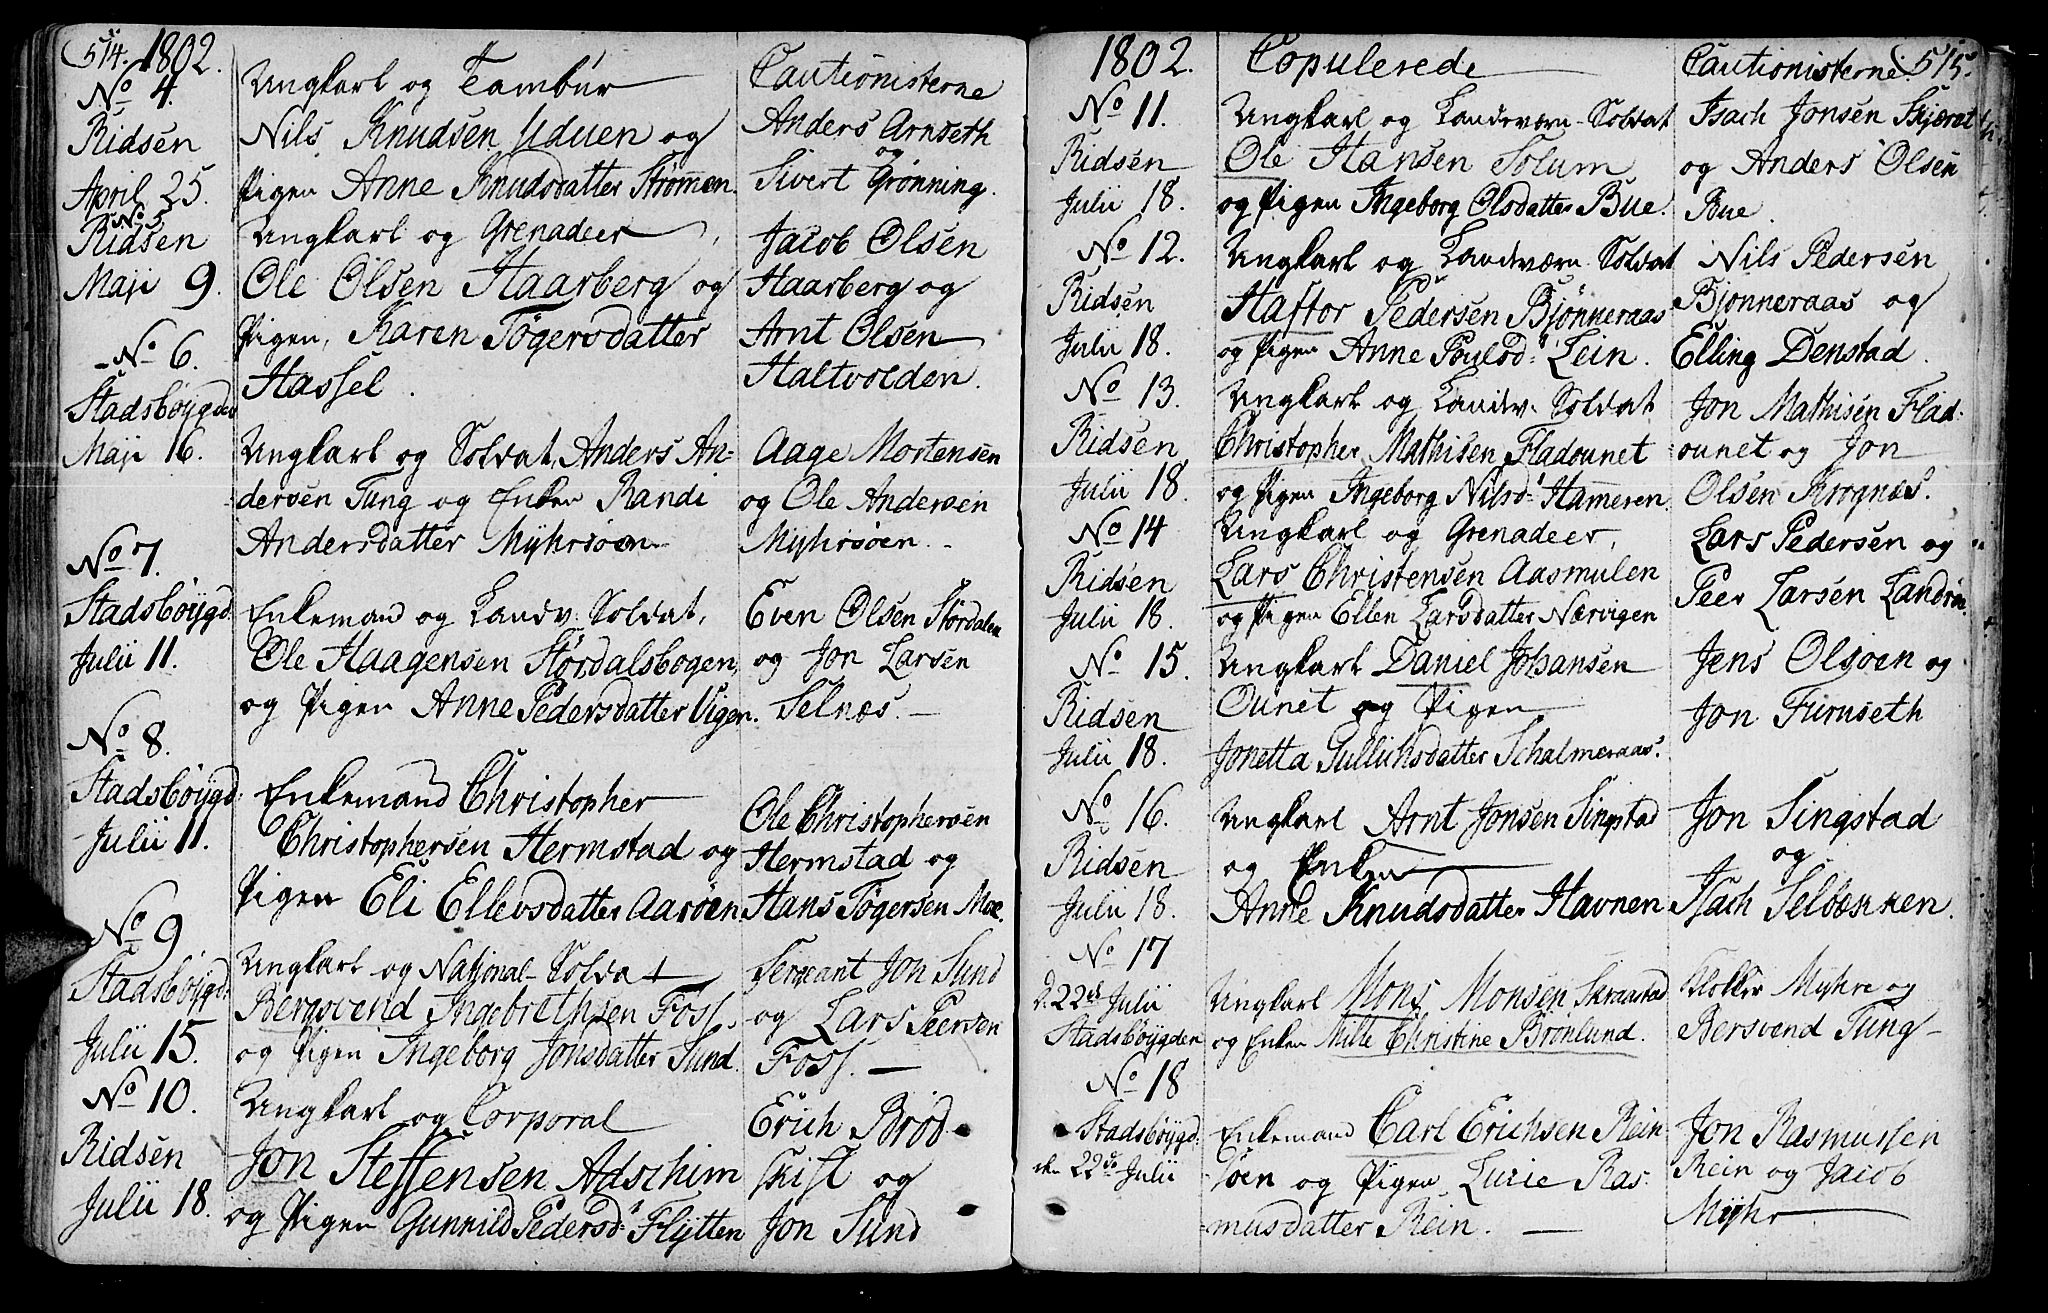 514. 1802.
No 4.
Ridsen
April 25.
Ungkarl og Tambur
Nils Knudsen Uduen og
Pigen Anne Knudsdatter Strømen.
Cautionisterne
Anders Arnseth
og
Sivert Grønning.
No 5
Ridsen
Maji 9.
Ungkarl og Grenadeer
Ole Olsen Haarberg og
Pigen, Karen Tøgersdatter
Hassel.
Jacob Olsen
Haarberg og
Arnt Olsen
Haltvolden.
No 6.
Stadsbøygden
Maji 16.
Ungkarl og Soldat, Anders An-
dersen Tung og Enken Randi
Andersdatter Myhrsøen
Aage Mortensen
og Ole Andersen
Myhrsøen.
No 7.
Stadsbøygd.
Julii 11.
Enkemand og Landv: Soldat,
Ole Haagensen Størdalsbogen,
og Pigen Anne Pedersdatter Vigen.
Even Olsen Størdalen
og Jon Larsen
Selnæs.
No 8.
Stadsbøygd:
Julii 11.
Enkemand Christopher
Christophersen Hermstad og
Pigen Eli Ellevsdatter Aasøen.
Ole Christophersen
Hermstad og
Hans Tøgersen Moe.
No 9
Stadsbøygd.
Julii 15.
Ungkarl og National-Soldat
Bergsvend Ingebrethsen Foss.
og Pigen Ingeborg Jonsdatter Sund.
Sergeant Jon Sund
og Lars Peersen
Foss.
No 10.
Ridsen
Julii 18.
Ungkarl og Corporal
Jon Steffensen Adschim
og Pigen Gunnild Pedersd: Flytten
Erich Brød-
skift og
Jon Sund
1802. Copulerede Cautionisterne 515.
No 11.
Ridsen
Julii 18.
Ungkarl og Landeværn-Soldat
Ole Hansen Solum
og Pigen Ingeborg Olsdatter Bue.
Isach Jonsen Skjæret
og Anders Olsen
Bue.
No 12.
Ridsen
Julii 18.
Ungkarl og Landværn-Soldat
Haftor Pedersen Bjønneraas
og Pigen Anne Poulsd: Lein.
Nils Pedersen
Bjønneraas og
Elling Denstad.
No 13.
Ridsen
Julii 18.
Ungkarl og Landv: Soldat
Christopher Mathisen Fladounet
og Pigen Ingeborg Nilsd: Hameren.
Jon Mathisen Flad-
ounet og Jon
Olsen Krognæs.
No 14
Ridsen
Julii 18.
Ungkarl og Grenadeer,
Lars Christensen Aasmulen
og Pigen Ellen Larsdatter Nærvigen
Lars Pedersen og
Peer Larsen
No 15.
Ridsen
Julii 18.
Ungkarl Daniel Johansen
Ounet og Pigen
Jonetta Gulliksdatter Schalmeraas.
Jens Olsøen og
Jon Furuseth
No 16.
Ridsen
Julii 18.
Ungkarl Arnt Jonsen Singstad
og Enken
Anne Knudsdatter Havnen
Jon Singstad
og
Isach Selbækken.
No 17
d. 22de Julii
Stadsbøygden
Ungkarl Mons Monsen Skraastad
og Enken Mille Christine Brønlund.
Klokker Myhre og
Bersvend Tung
No 18
Stadsbøygd:
den 22de Julii
Enkemand Carl Erichsen Rein
søen og Pigen Lucie Ras-
musdatter Rein.
Jon Rasmussen
Rein og Jacob
Myhr